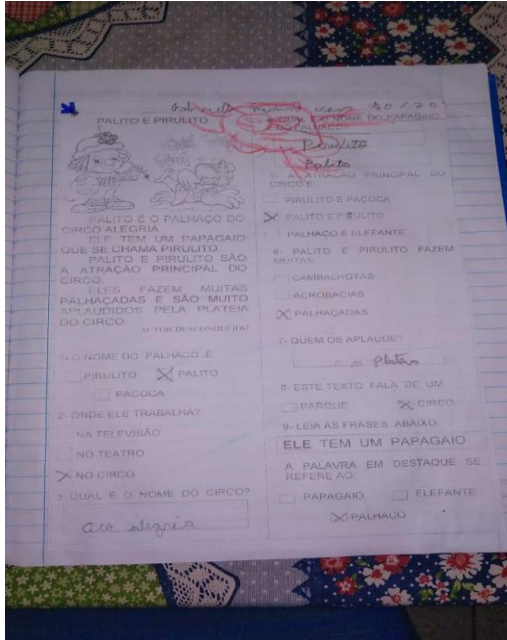 10/20
PALITO E PIRULITO
PALITO É O PALHAÇO DO
CIRCO ALEGRIA.
ELE TEM UM PAPAGAIO
QUE SE CHAMA PIRULITO.
PALITO E PIRULITO SÃO
A ATRAÇÃO PRINCIPAL DO
CIRCO.
ELES FAZEM MUITAS
PALHAÇADAS E SÃO MUITO
APLAUDIDOS PELA PLATEIA
DO CIRCO.
AUTOR DESCONHECIDO
1- O NOME DO PALHAÇO É
PIRULITO X PALITO
PAÇOCA
2- ONDE ELE TRABALHA?
NA TELEVISÃO
NO TEATRO
X NO CIRCO
3- QUAL É O NOME DO CIRCO?
alegria
QUAL É O NOME DO PAPAGAIO
DO PALHAÇO?
Pirulito
Palito
A ATRAÇÃO PRINCIPAL DO
CIRCO É:
PIRULITO E PAÇOCA
X PALITO E PIRULITO
PALHAÇO E ELEFANTE
6- PALITO E PIRULITO FAZEM
MUITAS
CAMBALHOTAS
ACROBACIAS
X PALHAÇADAS
7- QUEM OS APLAUDE?
8- ESTE TEXTO FALA DE UM
PARQUE X CIRCO
9- LEIA AS FRASES ABAIXO
ELE TEM UM PAPAGAIO
A PALAVRA EM DESTAQUE SE
REFERE AO
PAPAGAIO ELEFANTE
X PALHAÇO